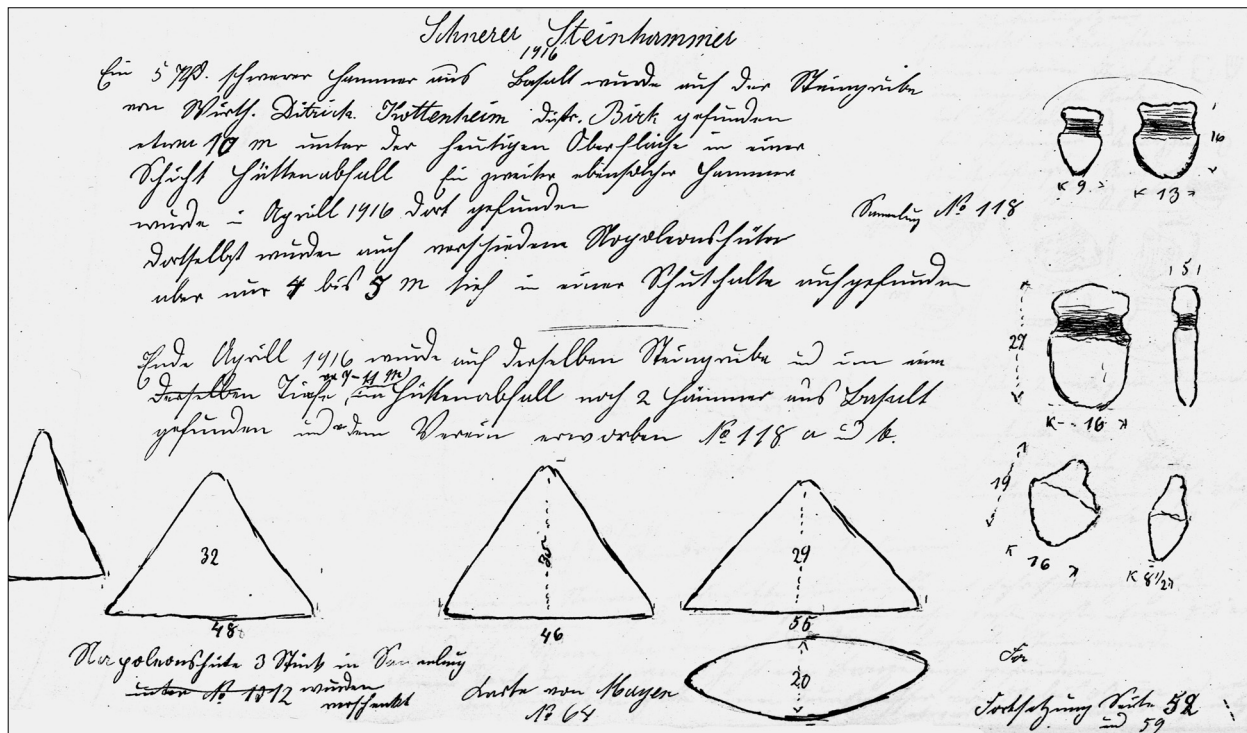 Schwerer Steinhammer
1916
Ein 5 Pfd. schwerer Hammer aus Basalt wurde auf der Steingrube
von Wirth. Ditrich. Kottenheim distr. Birk gefunden
etwa 10 m unter der heutigen Oberfläche in einer
Schicht Hüttenabfall Ein zweiter ebensolcher Hammer
wurde i Aprill 1916 dort gefunden
Sammlung № 118
Dortselbst wurden auch verschiedene Napoleonshüte
aber nur 4 bis 5 m tief in einer Schuthalte aufgefunden
Ende Aprill 1916 wurde auf derselben Steingrube ud im
derselben Tiefe im Hüttenabfall noch 2 Hämmer aus Basalt
gefunden ud dem Verein erworben № 118 a ud b.
9
13
16
5
27
16
19
16
8 1/2
32
48
46
29
55
20
Napoleonshüte 3 Stück in Sammlung
unter № 1312 wurden
verschenkt
Karte von Mayen
№ 64
For
Fortsetzung Seite 52
ud 59